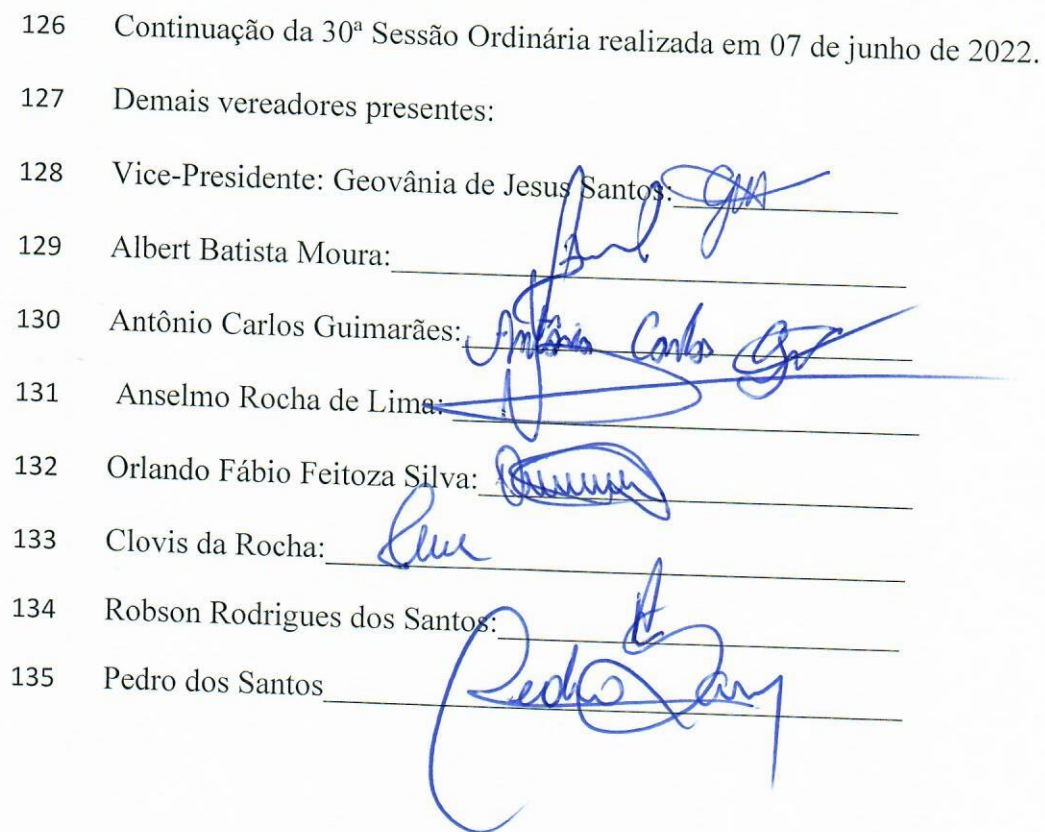 126 Continuação da 30ª Sessão Ordinária realizada em 07 de junho de 2022.
127 Demais vereadores presentes:
128 Vice-Presidente: Geovânia de Jesus Santos:
129 Albert Batista Moura:
130 Antônio Carlos Guimarães: Antônio Carlos
131 Anselmo Rocha de Lima:
132 Orlando Fábio Feitoza Silva:
133 Clovis da Rocha:
134 Robson Rodrigues dos Santos:
135 Pedro dos Santos Pedro